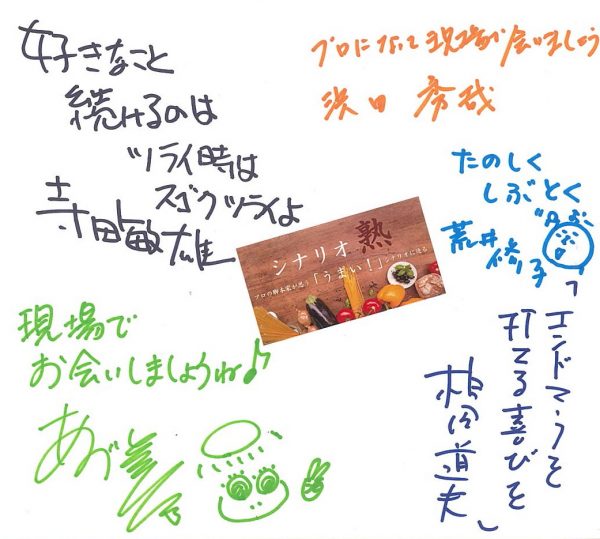 好きなこと
続けるのは
ツライ時は
スゴクツライよ
寺田敏雄
プロになって現場で会いましょう
浜田秀哉
たのしく
しぶとく
荒井修子
シナリオ 熟
プロの脚本家が思う「うまい!」シナリオに迫る
現場で
お会いしましょうね♪
あべ美佳
「エンドマークを
打てる喜びを」
柏田道夫